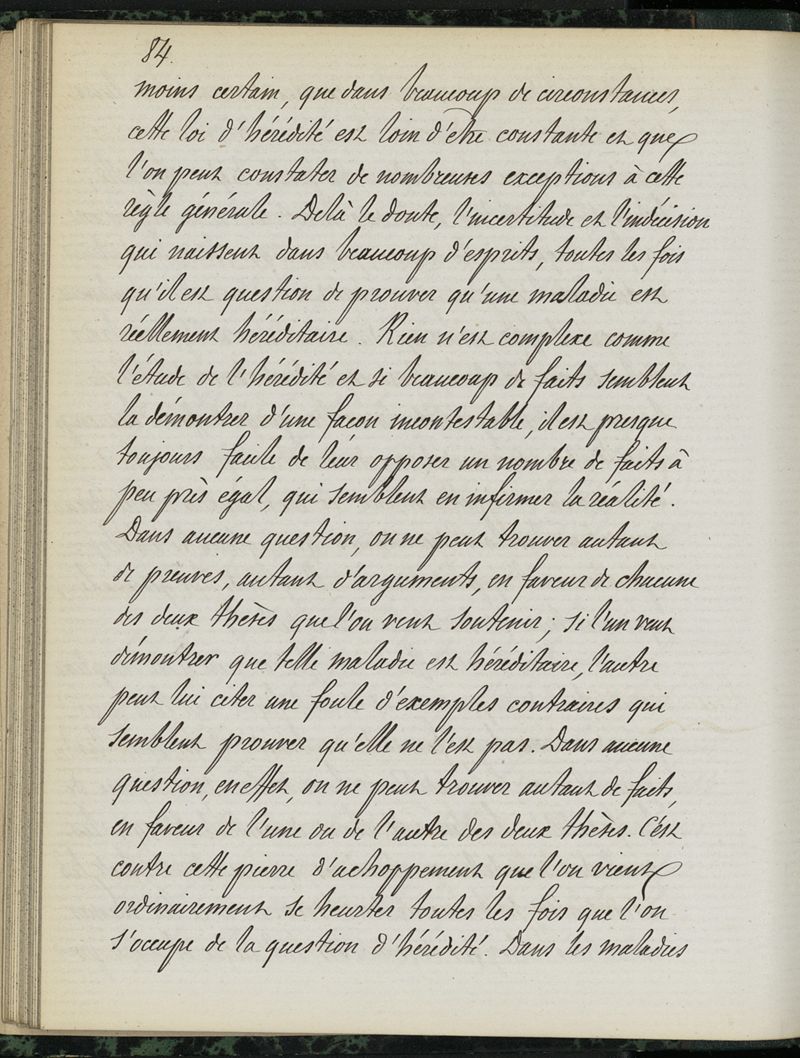 84.
moins certain, que dans beaucoup de circonstances,
cette loi d'hérédité est loin d'être constante et que
l'on peut constater de nombreuses exceptions à cette
règle générale. Delà le doute, l'incertitude et l'indécision
qui naissent dans beaucoup d'esprits, toutes les fois
qu'il est question de prouver qu'une maladie est
réellement héréditaire. Rien n'est complexe comme
l'étude de l'hérédité et si beaucoup de faits semblent
la démontrer d'une façon incontestable, il est presque
toujours facile de leur opposer un nombre de faits à
peu près égal, qui semblent en infirmer la réalité.
Dans aucune question, on ne peut trouver autant
de preuves, autant d'arguments, en faveur de chacune
des deux thèses que l'on veut soutenir; si l'un veut
démontrer que telle maladie est héréditaire, l'autre
peut lui citer une foule d'exemples contraires qui
semblent prouver qu'elle ne l'est pas. Dans aucune
question, en effet, on ne peut trouver autant de faits,
en faveur de l'une ou de l'autre des deux thèses. C'est
contre cette pierre d'achoppement que l'on vient
ordinairement se heurter toutes les fois que l'on
s'occupe de la question d'hérédité. Dans les maladies